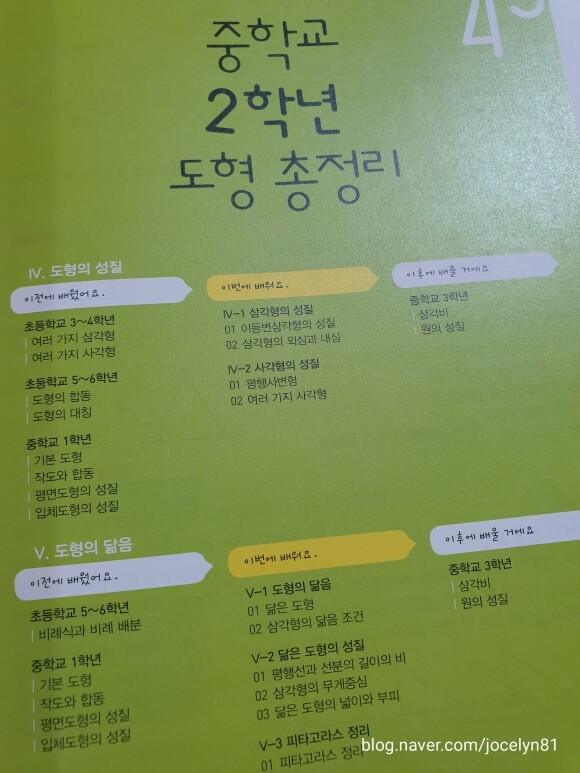 45
중학교
2학년
도형 총정리
IV. 도형의 성질
이전에 배웠어요.
초등학교 3~4학년
여러 가지 삼각형
여러 가지 사각형
초등학교 5~6학년
도형의 합동
도형의 대칭
중학교 1학년
기본 도형
작도와 합동
평면도형의 성질
입체도형의 성질
이번에 배워요.
IV-1 삼각형의 성질
01 이등변삼각형의 성질
02 삼각형의 외심과 내심
IV-2 사각형의 성질
01 평행사변형
02 여러 가지 사각형
이후에 배울 거예요
중학교 3학년
삼각비
원의 성질
V. 도형의 닮음
이전에 배웠어요.
초등학교 5~6학년
비례식과 비례 배분
중학교 1학년
기본 도형
작도와 합동
평면도형의 성질
입체도형의 성질
이번에 배워요.
V-1 도형의 닮음
01 닮은 도형
02 삼각형의 닮음 조건
V-2 닮은 도형의 성질
01 평행선과 선분의 길이의 비
02 삼각형의 무게중심
03 닮은 도형의 넓이와 부피
V-3 피타고라스 정리
01 피타고라스 정리
이후에 배울 거예요
중학교 3학년
삼각비
원의 성질
blog.naver.com/jocelyn81